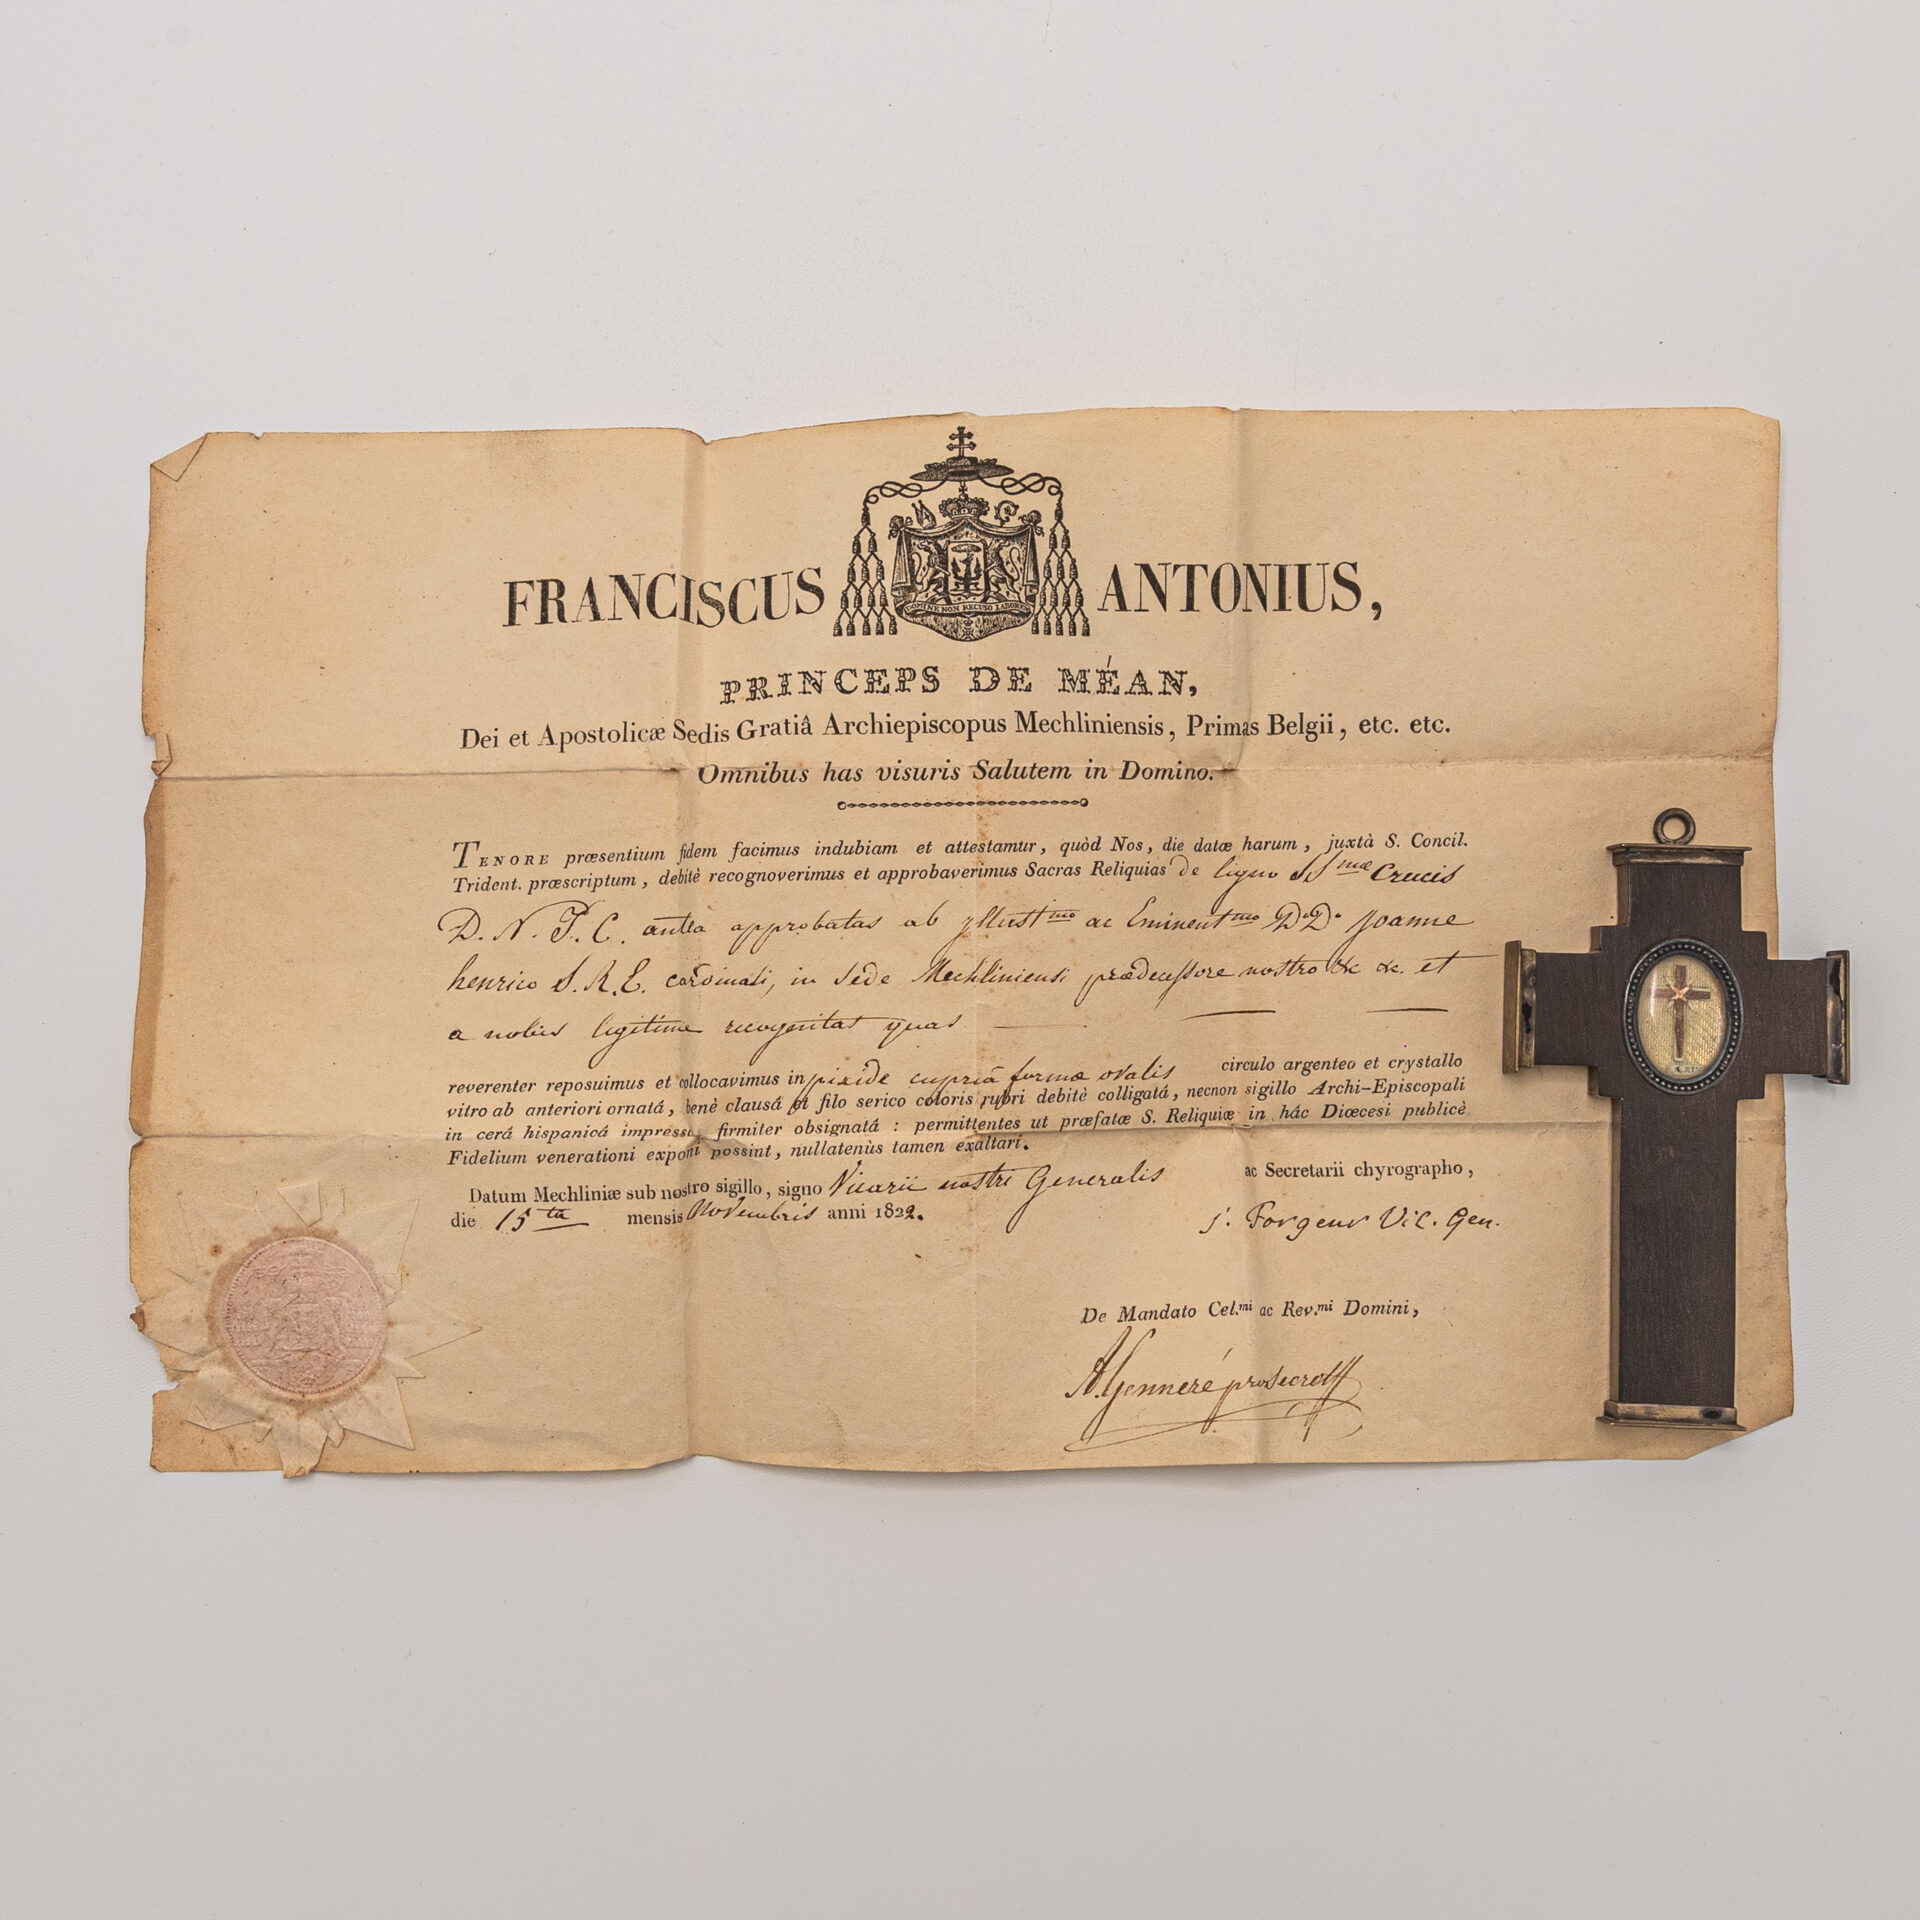 DOMINE NON RECUSO LABOREM
FRANCISCUS ANTONIUS,
PRINCEPS DE MÉAN,
Dei et Apostolicæ Sedis Gratiâ Archiepiscopus Mechliniensis, Primas Belgii, etc. etc.
Omnibus has visuris Salutem in Domino.
TENORE præsentium fidem facimus indubiam et attestamur, quòd Nos, die datæ harum, juxtà S. Concil.
Trident. præscriptum, debitè recognoverimus et approbaverimus Sacras Reliquias de ligno SSmæ Crucis
D. N. J. C. antea approbatas ab Illustmo ac Eminentmo D.D. Joanne
henrico S. R. E. cardinali, in sede Mechliniensi prædecessore nostro &c &c. et
a nobis legitime recognitas quas
reverenter reposuimus et collocavimus in pixide cupreâ formæ ovalis circulo argenteo et crystallo
vitro ab anteriori ornatá, benè clausá et filo serico coloris rubri debitè colligatá, necnon sigillo Archi-Episcopali
in cerá hispanicá impresso firmiter obsignatá : permittentes ut præfatæ S. Reliquiæ in hác Diœcesi publicè
Fidelium venerationi exponi possint, nullatenùs tamen exaltari.
Datum Mechliniæ sub nostro sigillo, signo Vicarii nostri Generalis ac Secretarii chyrographo,
die 15ta mensis Novembris anni 1822.
J. Forgeur Vic. Gen.
De Mandato Cel.mi ac Rev.mi Domini,
A. Genneré prosecret